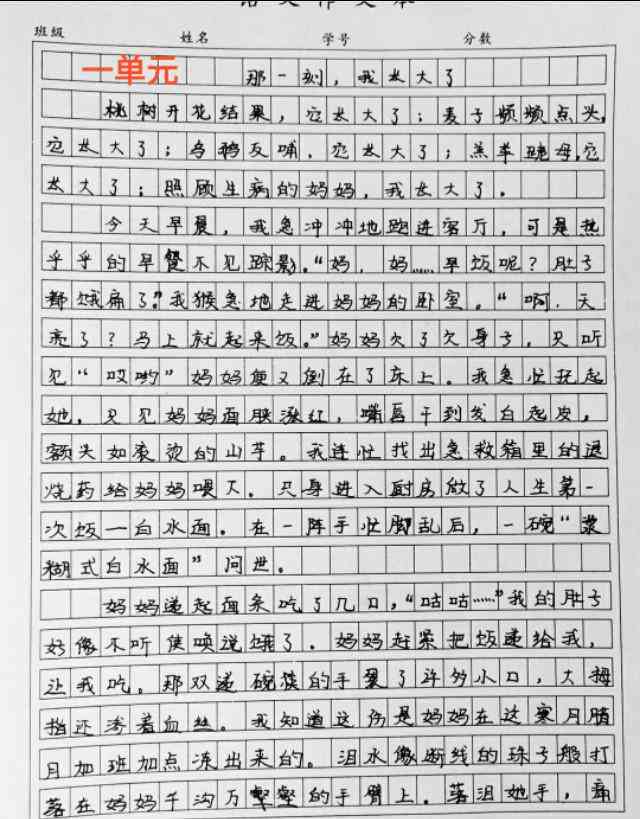 语文作文本
班级 姓名 学号 分数
一单元 那一刻,我太大了
桃树开花结果,它太大了;麦子频频点头,
它太大了;乌鸦反哺,它太大了;羔羊跪母,它
太大了;照顾生病的妈妈,我太大了。
今天早晨,我急冲冲地跑进客厅,可是热
乎乎的早餐不见踪影。“妈,妈……早饭呢?肚子
都饿痛了?”我猴急地走进妈妈的卧室。“啊,天
亮了?马上就起来饭。”妈妈欠了欠身子,只听
见“哎哟”妈妈便又倒在了床上。我急忙扶起
她,只见妈妈面肤涨红,嘴唇干到发白起皮,
额头如滚烫的山芋。我连忙找出急救箱里的退
烧药给妈妈喂下。只身进入厨房做了人生第一
次饭—白水面。在一阵手忙脚乱后,一碗“浆
糊式白水面”问世。
妈妈递起面条吃了几口,“咕咕……”我的肚子
好像不听使唤说饿了。妈妈赶紧把饭递给我,
让我吃。那双递碗筷的手裂了许多小口,大拇
指还渗着血丝。我知道这伤是妈妈在这寒月腊
月加班加点冻出来的。泪水像断线的珠子般打
落在妈妈千沟万壑的手臂上。落泪她手,痛